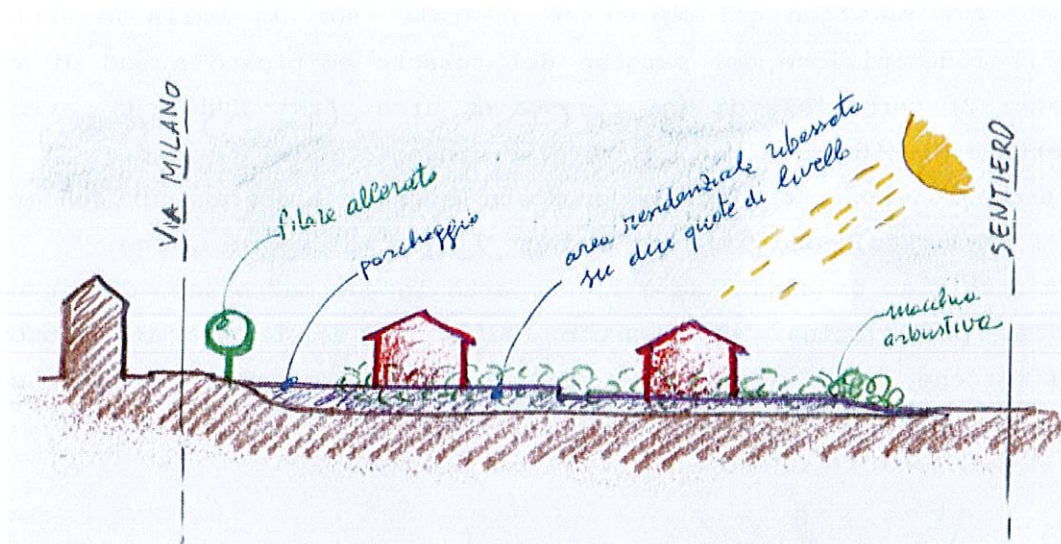 VIA MILANO
filare alberato
parcheggio
area residenziale ribassata
su due quote di livello
SENTIERO
macchia
arbustiva